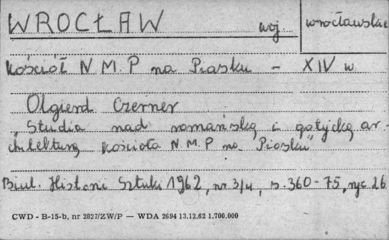 WROCŁAW woj. wrocławskie
Kościół N M P na Piasku – XIV w
Olgierd Czerner
"Studia nad romańską i gotycką ar-
chitekturą Kościoła N.M.P na Piasku"
Biul. Historii Sztuki 1962, nr. 3/4, s. 360-75, ryc 26
CWD - B-15-b, nr 2827/ZW/P — WDA 2694 13.12.62 1.700.000